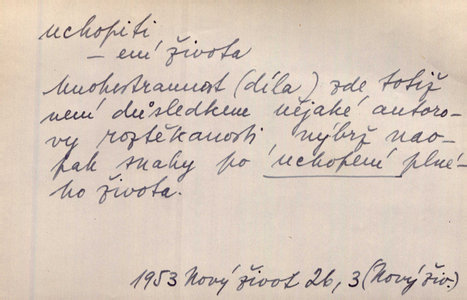 uchopiti
– ení života
Mnohostrannost (díla) zde totiž
není důsledkem nějaké autoro-
vy roztěkanosti nýbrž nao-
pak snahy po uchopení plné-
ho života.
1953 Nový život 26, 3 (Nový živ.)